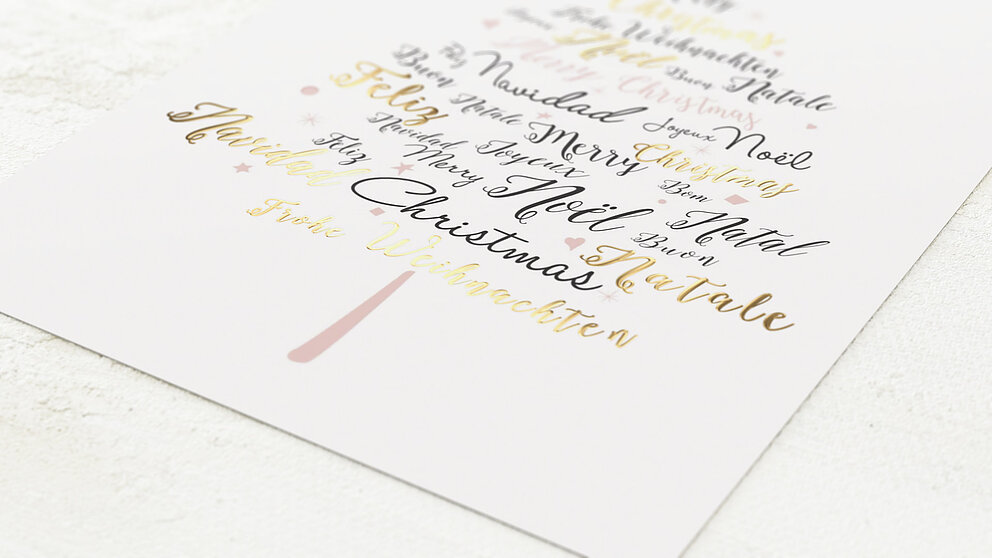 Christmas
Frohe Weihnachten
Noël Buon Natale
Merry Christmas
Feliz Navidad Joyeux Noël
Buon Natale Merry Christmas
Feliz Navidad Joyeux Bom Natal
Feliz Merry Noël Buon Natale
Navidad Christmas
Frohe Weihnachten